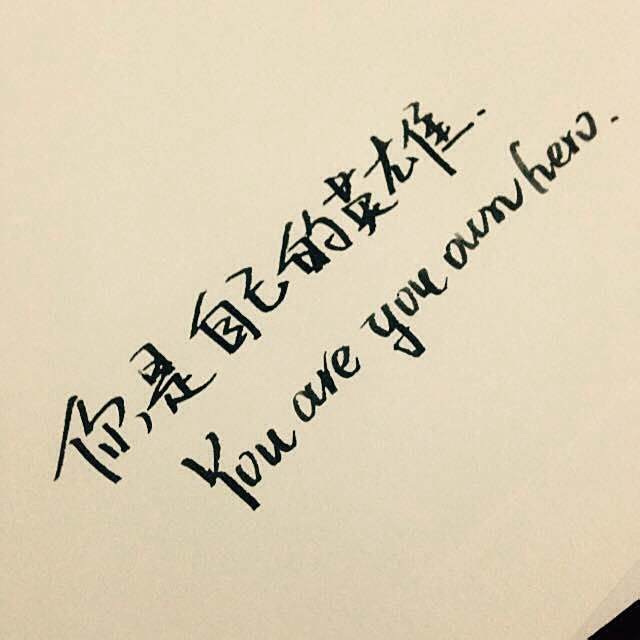 你是自己的英雄.
You are you own hero.